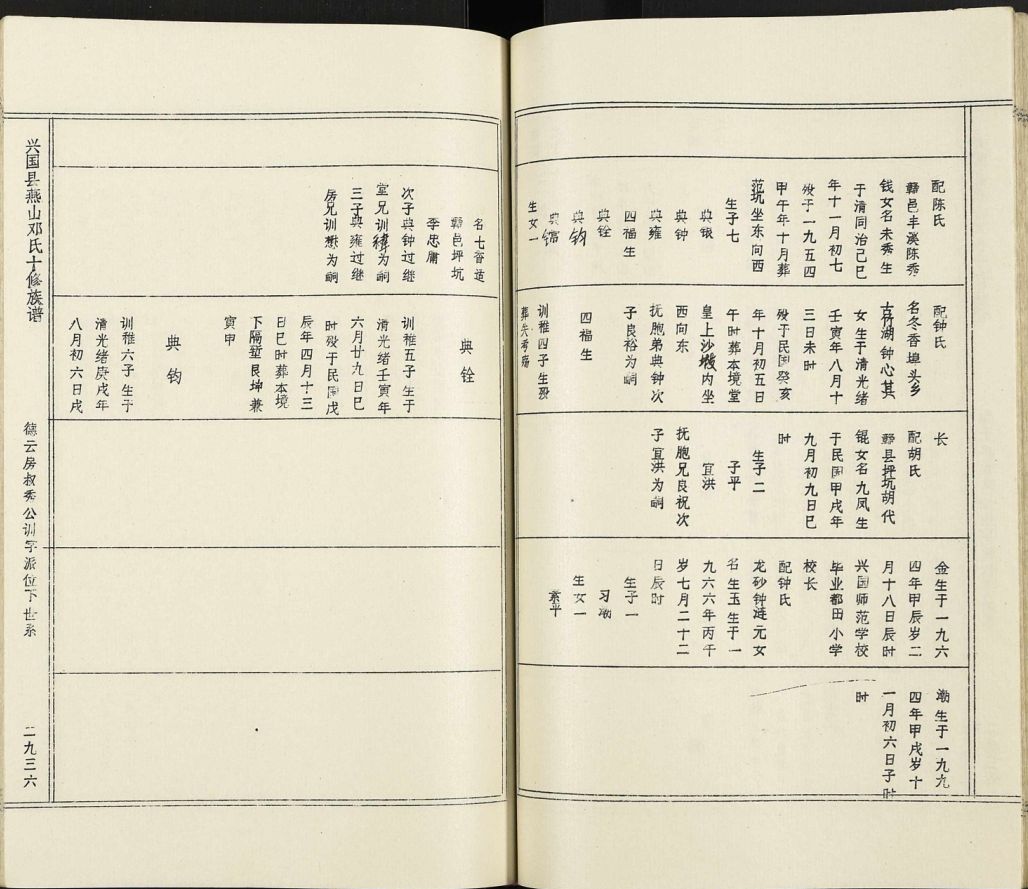 配陈氏
赣邑丰溪陈秀
钱女名未秀生
于清同治己巳
年十一月初七
殁于一九五四
甲午年十月葬
范坑坐东向西
生子七
典银
典钟
典雍
四福生
典铨
典钧
典
生女一
配钟氏
名冬香埠头乡
古竹湖钟心其
女生于清光绪
壬寅年八月十
三日未时
殁于民国癸亥
年十月初五日
午时葬本境堂
皇上沙墩内坐
西向东
抚胞弟典钟次
子良裕为嗣
四福生
训稚四子生殁
葬失考殇
长
配胡氏
赣县坪坑胡代
锟女名九凤生
于民国甲戌年
九月初九日巳
时
生子二
子平
宜洪
抚胞兄良祝次
子宜洪为嗣
金生于一九六
四年甲辰岁二
月十八日辰时
兴国师范学校
毕业都田小学
校长
配钟氏
龙砂钟涟元女
名生玉生于一
九六六年丙午
岁七月二十二
日辰时
生子一
习瀚
生女一
紫平
瀚生于一九九
四年甲戌岁十
一月初六日子时
时
名七香适
赣邑坪坑
李忠庸
次子典钟过继
堂兄训为嗣
三子典雍过继
房兄训懋为嗣
典铨
训稚五子生于
清光绪壬寅年
六月廿九日巳
时殁于民国戊
辰年四月十三
日巳时葬本境
下隔堑艮坤兼
寅甲
典钧
训稚六子生于
清光绪庚戌年
八月初六日戌
兴国县燕山邓氏十修族谱
德云房叔秀公训字派位下世系
二九三六